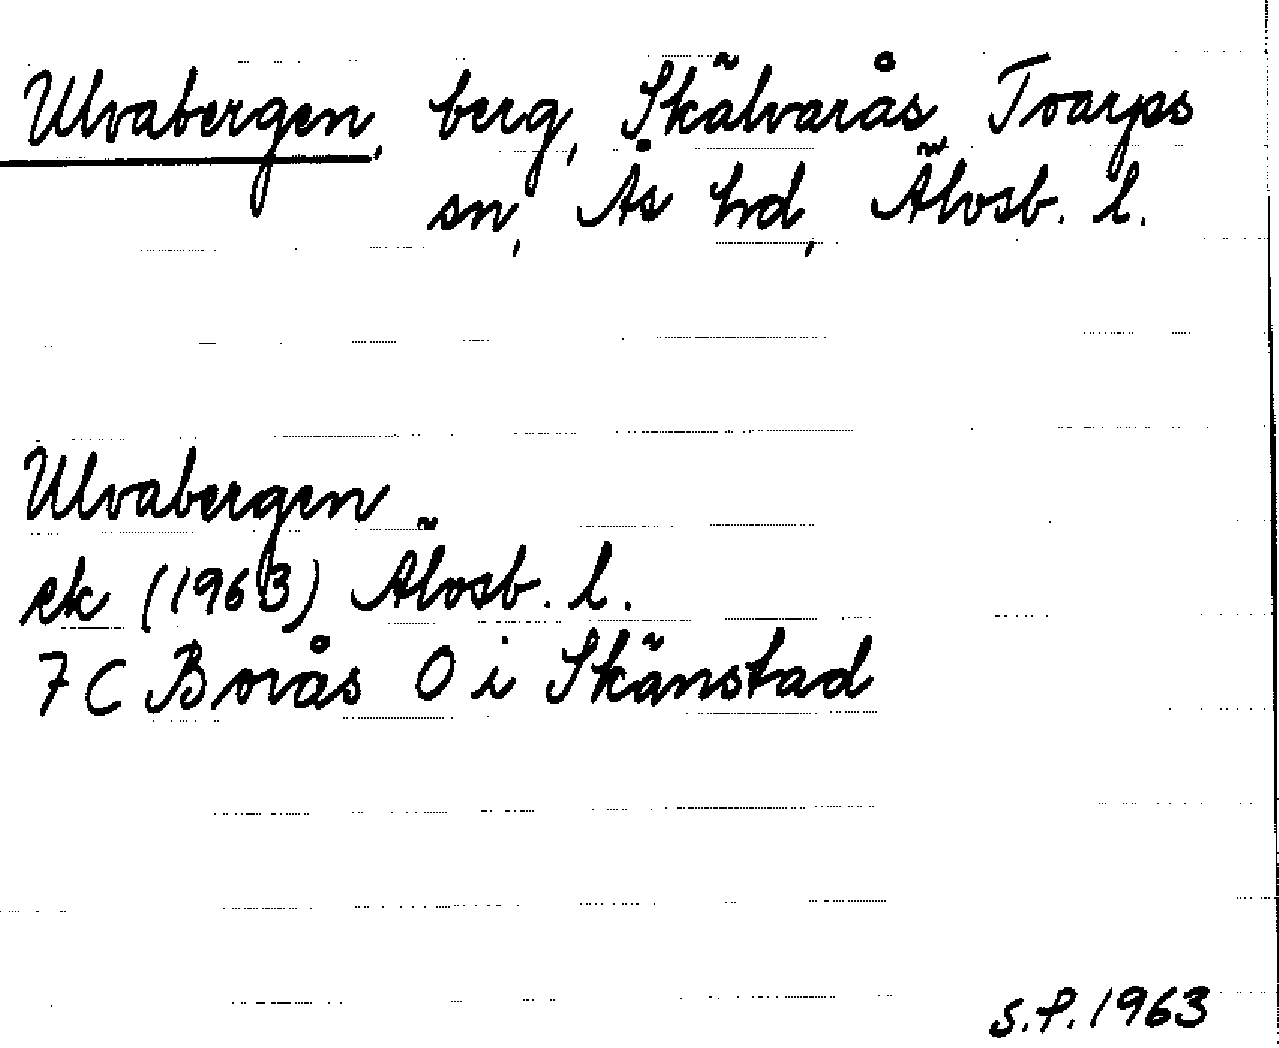 Ulvabergen, berg, Skälvarås, Toarps
sn, Ås hd, Älvsb. l.
Ulvabergen
ek (1963) Älvsb. l.
7 C Borås O i Skänstad
S.P. 1963